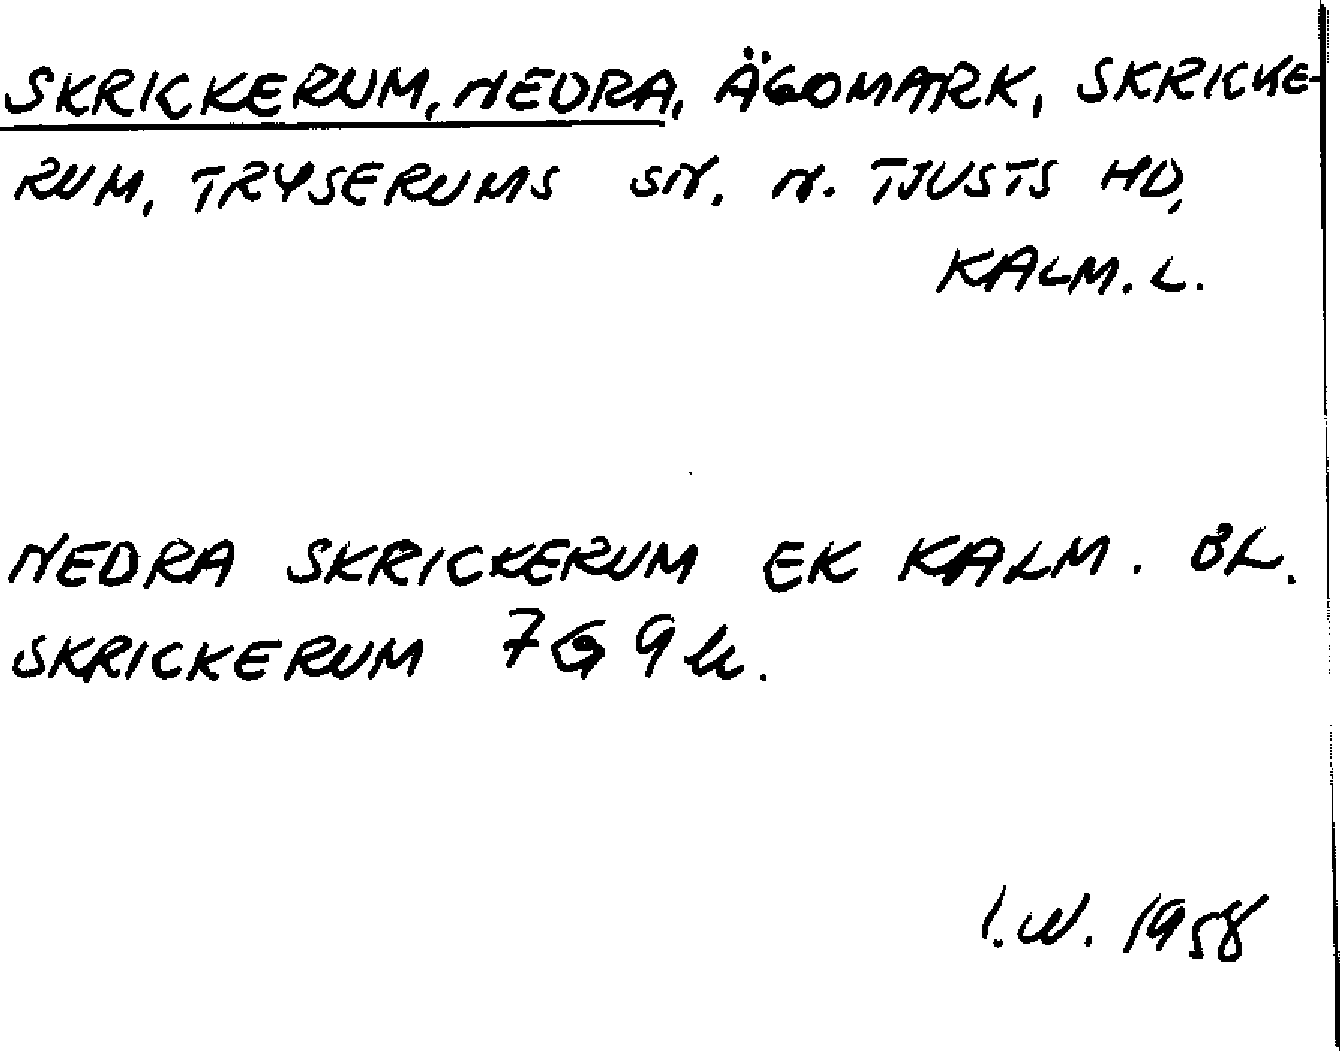 SKRICKERUM, NEDRA, ÄGOMARK, SKRICKE-
RUM, TRYSERUMS SN. N. TJUSTS HD,
KALM. L.
NEDRA SKRICKERUM EK KALM. BL.
SKRICKERUM 7G 9h.
I.W. 1958